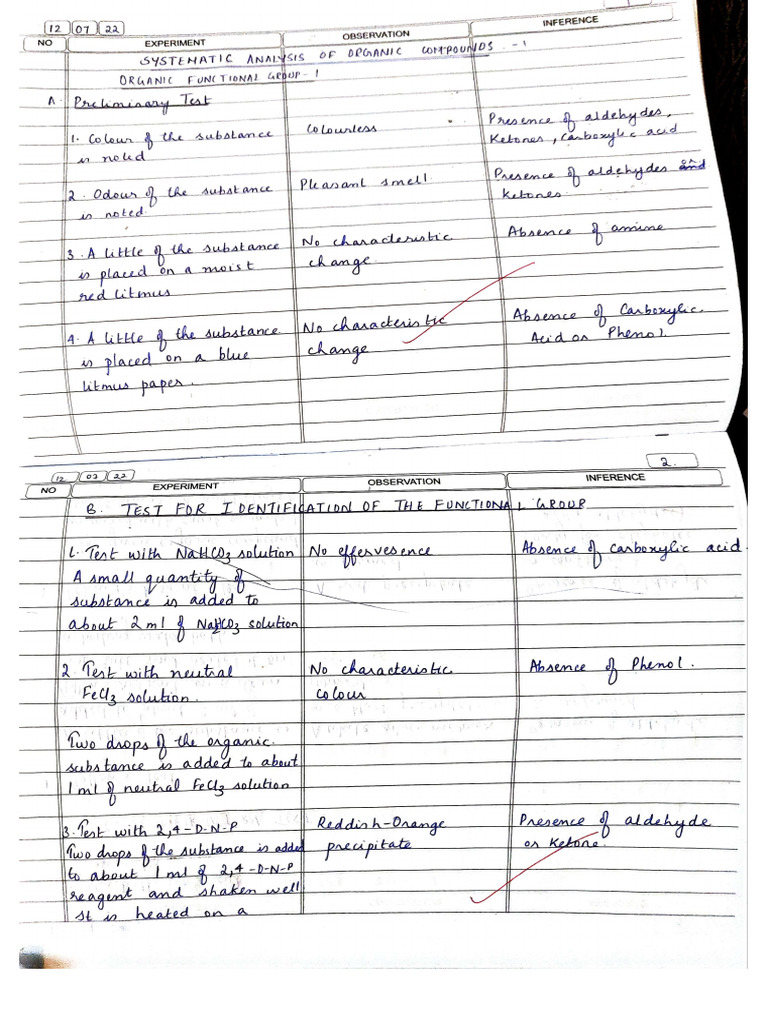 1
12 07 22
NO EXPERIMENT OBSERVATION INFERENCE
SYSTEMATIC ANALYSIS OF ORGANIC COMPOUNDS.-1
ORGANIC FUNCTIONAL GROUP-1
A. Preliminary Test
1. Colour of the substance
is noted
Colourless
Presence of aldehydes,
Ketones, Carboxylic acid
2. Odour of the substance
is noted.
Pleasant smell.
Presence of aldehydes and
or
Ketones
3. A little of the substance
is placed on a moist
red litmus
No characteristic
change.
Absence of amine
4. A little of the substance
is placed on a blue
litmus paper.
No characteristic
change
Absence of Carboxylic
Acid or Phenol.
2.
12 07 22
NO EXPERIMENT OBSERVATION INFERENCE
B. TEST FOR IDENTIFICATION OF THE FUNCTIONAL GROUP
1. Test with NaHCO3 solution
A small quantity of
substance is added to
about 2 ml of NaHCO3 solution
No effervesence
Absence of Carboxylic acid.
2. Test with neutral
FeCl3 solution.
Two drops of the organic
substance is added to about
1 ml of neutral FeCl3 solution
No characteristic
colour
Absence of Phenol.
3. Test with 2,4-D-N-P
Two drops of the substance is added
to about 1 ml of 2,4-D-N-P
reagent and shaken well
It is heated on a
Reddish-Orange
precipitate
Presence of aldehyde
or Ketone.